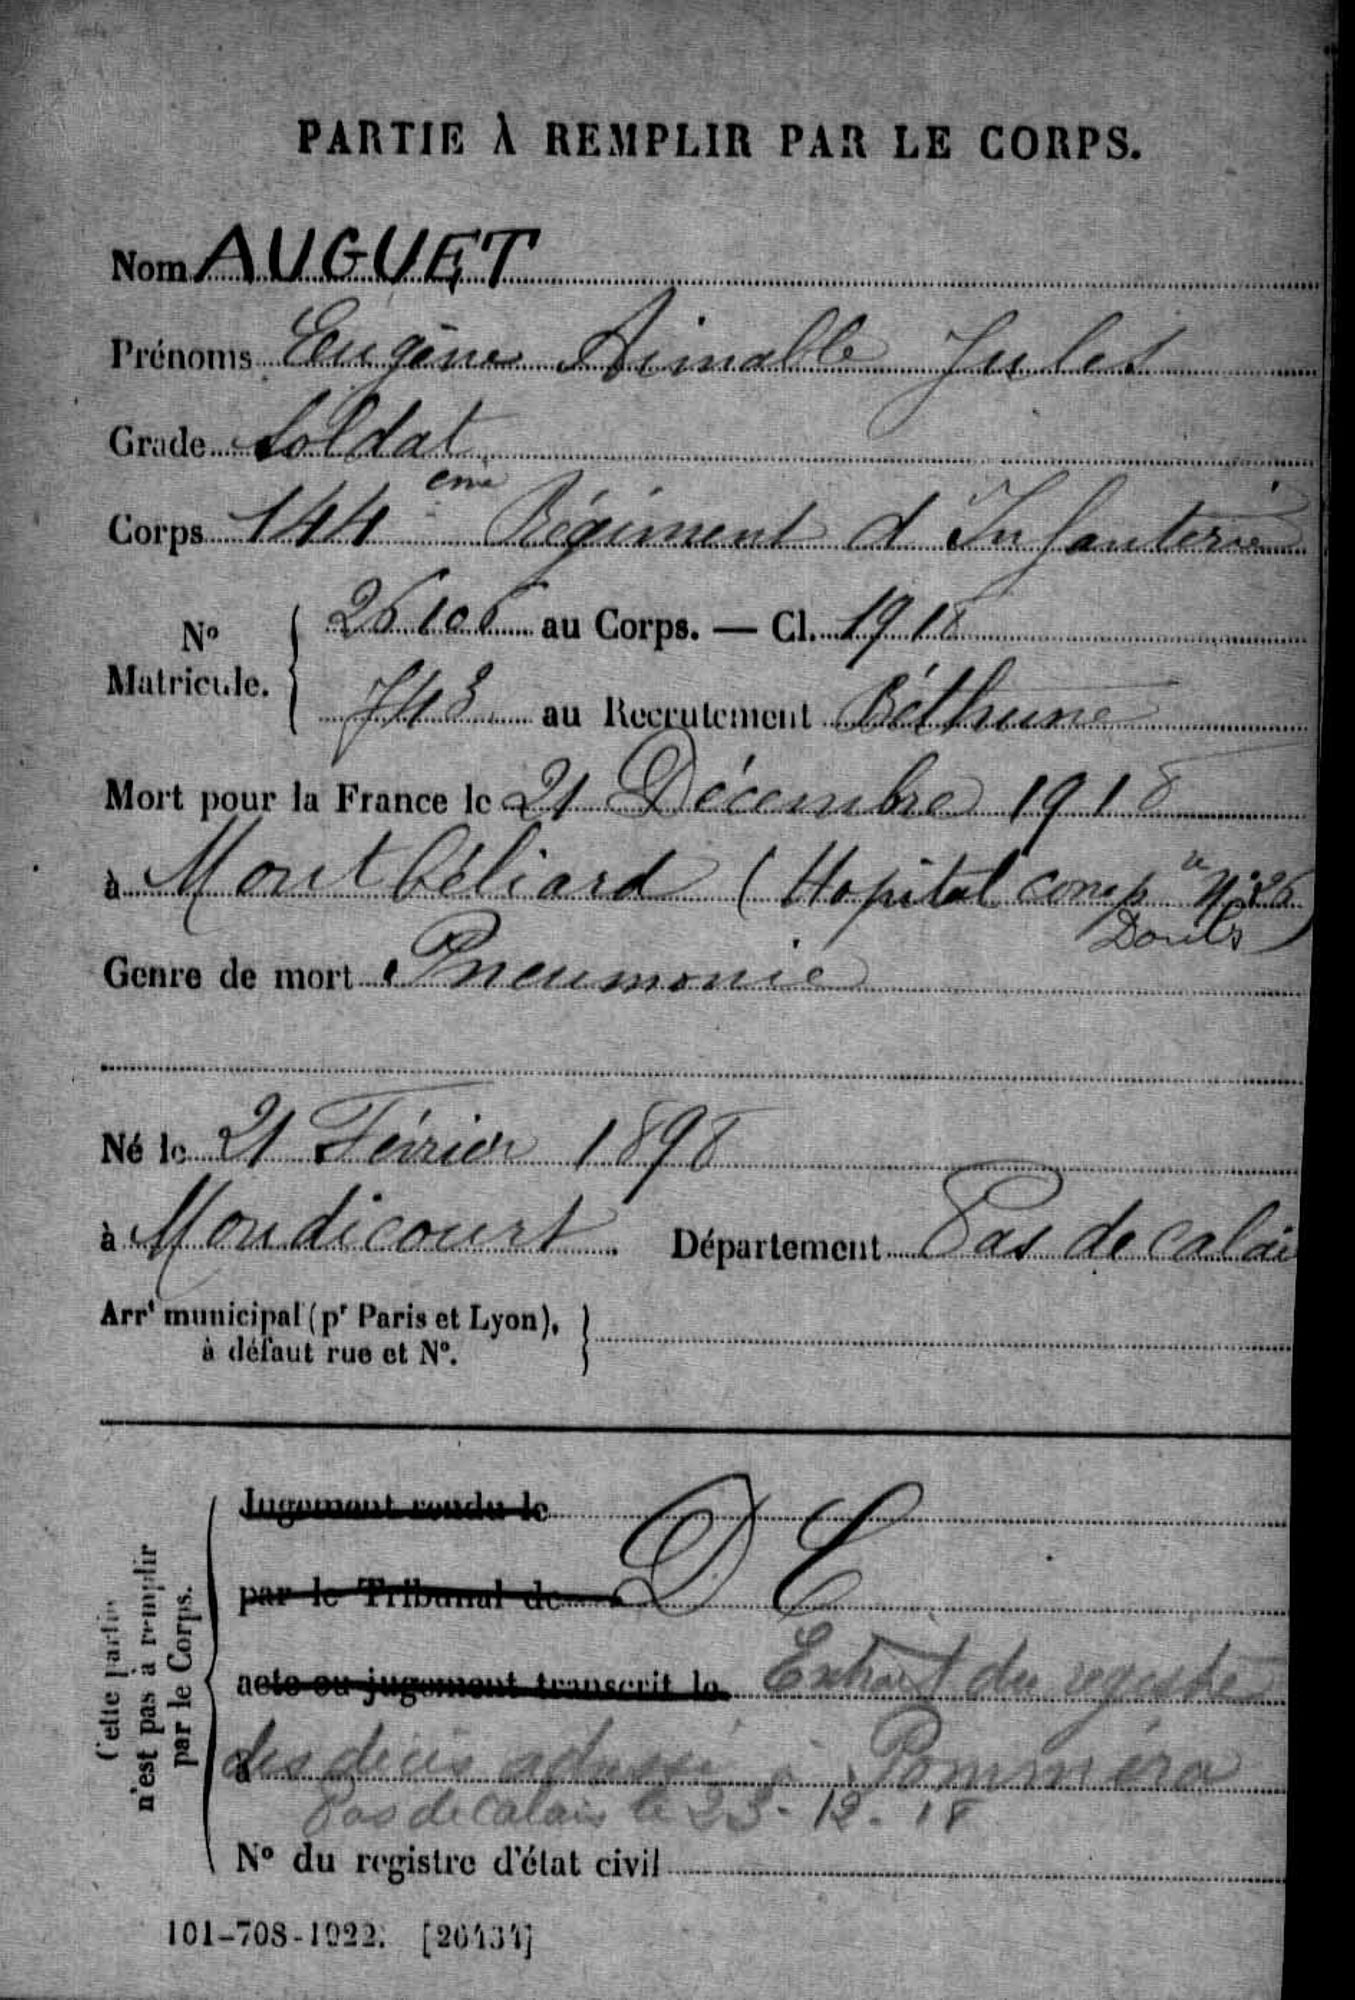 PARTIE À REMPLIR PAR LE CORPS.
Nom AUGUET
Prénoms Eugène Aimable Jules
Grade Soldat
Corps 144 eme Régiment d'Infanterie
No Matricule. 26106 au Corps. — Cl. 1918
743 au Recrutement Béthune
Mort pour la France le 21 Décembre 1918
à Montbéliard (Hopital comp re No 26
Doubs)
Genre de mort Pneumonie
Né le 21 Février 1898
à Mondicourt. Département Pas de calais
Arrt municipal (pr Paris et Lyon),
à défaut rue et No.
Cette partie
n'est pas à remplir
par le Corps.
Jugement rendu le
par le Tribunal de D C
acte ou jugement transcrit le Extrait du registre
à des décès adressé à Pommera
Pas de calais le 23-12-18
No du registre d'état civil
101-708-1922. [26434]